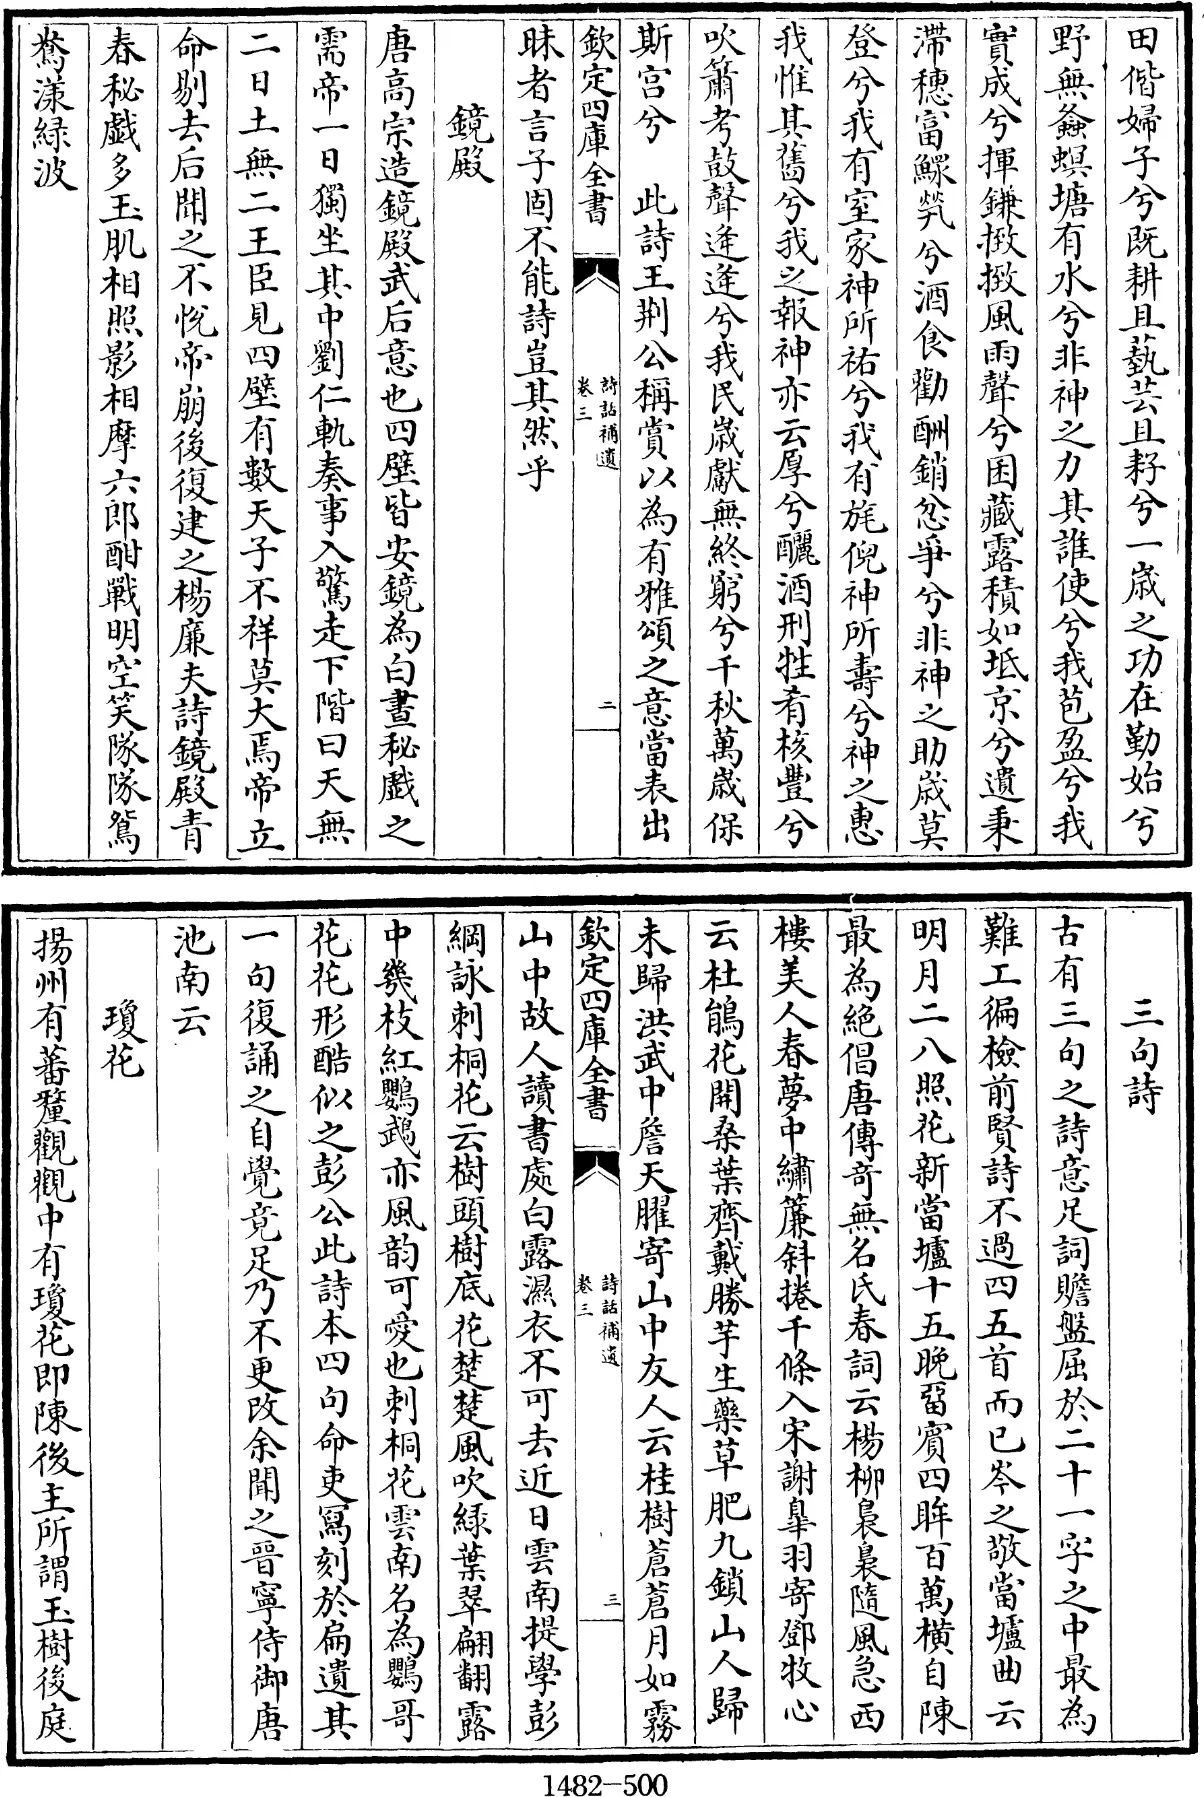 田偕婦子兮既耕且蓺芸且耔兮一歲之功在勤始兮
野無螽螟塘有水兮非神之力其誰使兮我苞盈兮我
實成兮揮鎌撽撽風雨聲兮困藏露積如坻京兮遺秉
滯穗富鰥煢兮酒食勸酬銷忿爭兮非神之助歲莫
登兮我有室家神所祐兮我有旄倪神所壽兮神之惠
我惟其舊兮我之報神亦云厚兮釃酒刑牲肴核豐兮
吹簫考鼓聲逄逄兮我民歲獻無終窮兮千秋萬歲保
斯宮兮 此詩王荆公稱賞以為有雅頌之意當表出
欽定四庫全書
詩話補遺
卷三
二
昧者言子固不能詩豈其然乎
鏡殿
唐高宗造鏡殿武后意也四壁皆安鏡為白晝秘戲之
需帝一日獨坐其中劉仁軌奏事入驚走下階曰天無
二日土無二王臣見四壁有數天子不祥莫大焉帝立
命剔去后聞之不悅帝崩後復建之楊廉夫詩鏡殿青
春秘戲多玉肌相照影相摩六郎酣戰明空笑隊隊鴛
鴦漾緑波
三句詩
古有三句之詩意足詞贍盤屈於二十一字之中最為
難工徧檢前賢詩不過四五首而已岑之敬當壚曲云
明月二八照花新當壚十五晚留賓四眸百萬橫自陳
最為絶倡唐傳奇無名氏春詞云楊柳裊裊隨風急西
樓美人春夢中繡簾斜捲千條入宋謝臯羽寄鄧牧心
云杜鵑花開桑葉齊戴勝芋生藥草肥九鎖山人歸
未歸洪武中詹天臞寄山中友人云桂樹蒼蒼月如霧
欽定四庫全書
詩話補遺
卷三
三
山中故人讀書處白露濕衣不可去近日雲南提學彭
綱詠刺桐花云樹頭樹底花楚楚風吹緑葉翠翩翻露
中幾枝紅鸚鵡亦風韵可愛也刺桐花雲南名為鸚哥
花花形酷似之彭公此詩本四句命吏冩刻於扁遺其
一句復誦之自覺竟足乃不更改余聞之晋寧侍御唐
池南云
瓊花
揚州有蕃釐觀觀中有瓊花即陳後主所謂玉樹後庭
1482-500